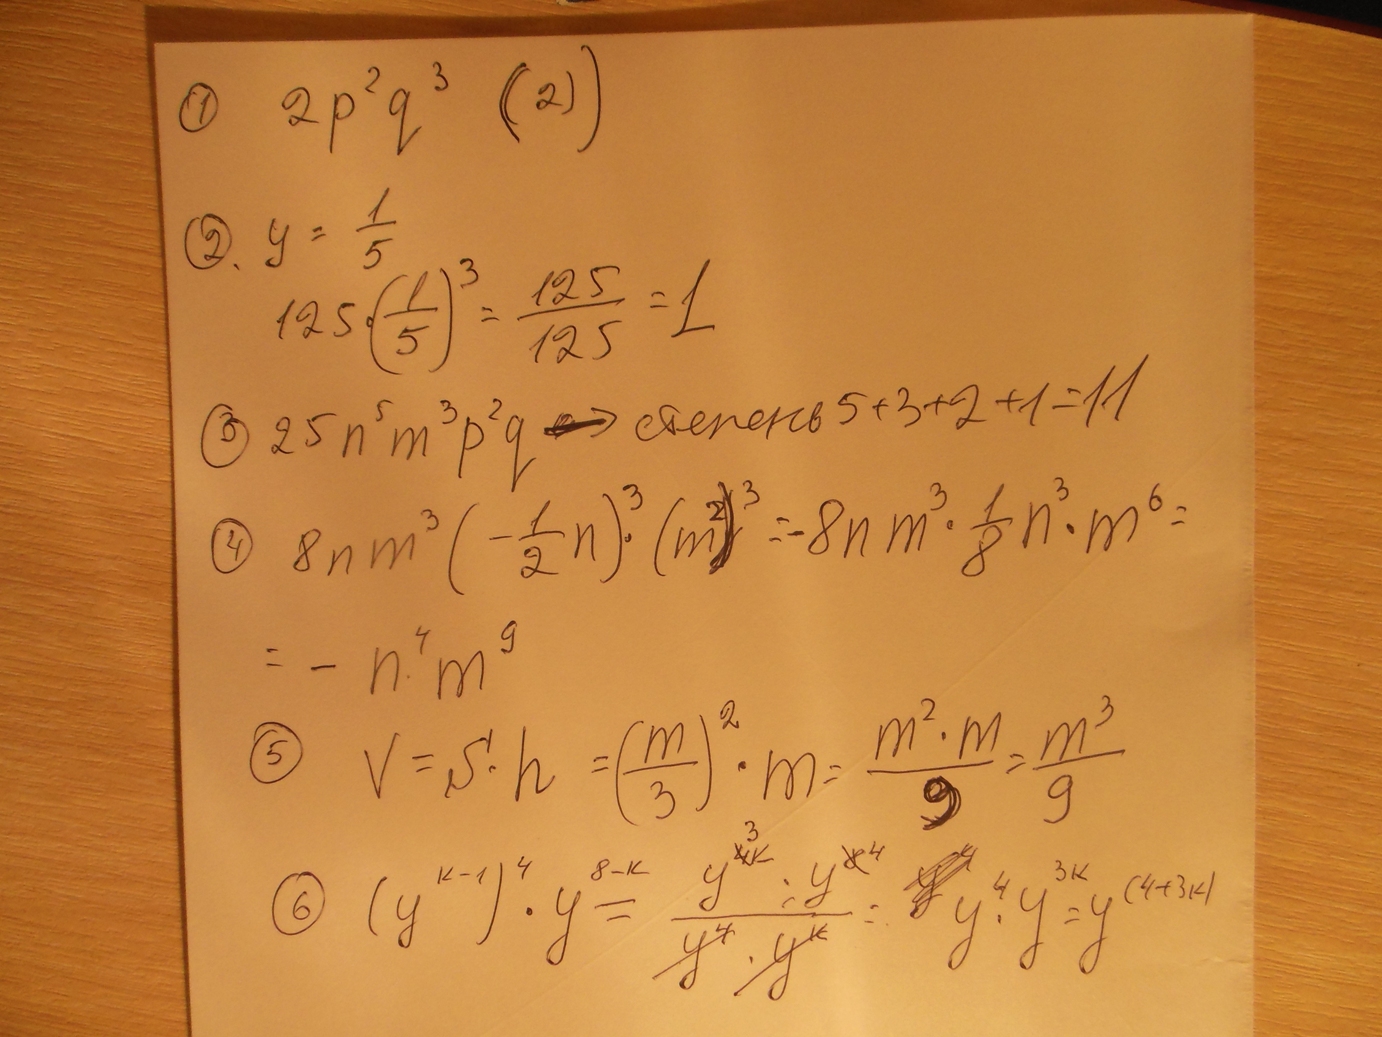 ① 2p²q³ (2)
②. y = 1/5
125·(1/5)³ = 125/125 = 1
③ 25n⁵m³p²q → степень 5+3+2+1=11
④ 8nm³(-1/2n)³·(m²)³ = -8nm³·1/8n³·m⁶ =
= - n⁴m⁹
⑤ V = S·h = (m/3)²·m = m²·m/9 = m³/9
⑥ (y^(k-1))⁴·y^(8-k) = y^(4k)·y^8/(y⁴·y^k) = y⁴·y^(3k) = y^(4+3k)